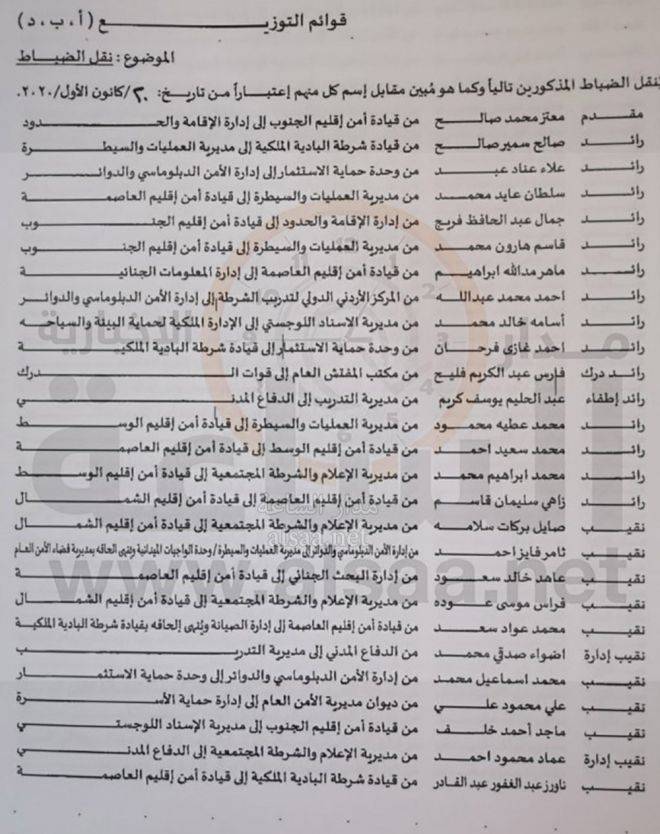 قوائم التوزيع (أ، ب، د)
الموضوع: نقل الضباط
يُنقل الضباط المذكورين تالياً وكما هو مُبين مقابل إسم كل منهم إعتباراً من تاريخ: ٢٠/كانون الأول/٢٠٢٠.
مقدم معتز محمد صالح من قيادة أمن إقليم الجنوب إلى إدارة الإقامة والحدود
رائد صالح سمير صالح من قيادة شرطة البادية الملكية إلى مديرية العمليات والسيطرة
رائد علاء عناد عبد من وحدة حماية الاستثمار إلى إدارة الأمن الدبلوماسي والدوائر
رائد سلطان عايد محمد من مديرية العمليات والسيطرة إلى قيادة أمن إقليم العاصمة
رائد جمال عبد الحافظ فريج من إدارة الإقامة والحدود إلى قيادة أمن إقليم الجنوب
رائد قاسم هارون محمد من مديرية العمليات والسيطرة إلى قيادة أمن إقليم الجنوب
رائد ماهر مدالله ابراهيم من قيادة أمن إقليم العاصمة إلى إدارة المعلومات الجنائية
رائد احمد محمد عبدالله من المركز الأردني الدولي لتدريب الشرطة إلى إدارة الأمن الدبلوماسي والدوائر
رائد أسامه خالد محمد من مديرية الاسناد اللوجستي إلى الإدارة الملكية لحماية البيئة والسياحه
رائد احمد غازي فرحان من وحدة حماية الاستثمار إلى قيادة شرطة البادية الملكية
رائد درك فارس عبد الكريم فليح من مكتب المفتش العام إلى قوات الدرك
رائد إطفاء عبد الحليم يوسف كريم من مديرية التدريب إلى الدفاع المدني
رائد محمد عطيه محمود من مديرية العمليات والسيطرة إلى قيادة أمن إقليم الوسط
رائد محمد سعيد احمد من قيادة أمن إقليم الوسط إلى قيادة أمن إقليم العاصمة
رائد محمد ابراهيم محمد من مديرية الإعلام والشرطة المجتمعية إلى قيادة أمن إقليم الوسط
رائد زاهي سليمان قاسم من قيادة أمن إقليم العاصمة إلى قيادة أمن إقليم الشمال
نقيب صايل بركات سلامه من مديرية الإعلام والشرطة المجتمعية إلى قيادة أمن إقليم الشمال
نقيب ثامر فايز احمد من إدارة الأمن الدبلوماسي والدوائر إلى مديرية العمليات والسيطرة/وحدة الواجبات الميدانية وينهى الحاقه بمديرية قضاء الأمن العام
نقيب عاهد خالد سعود من إدارة البحث الجنائي إلى قيادة أمن إقليم العاصمة
نقيب فراس موسى عوده من مديرية الإعلام والشرطة المجتمعية إلى قيادة أمن إقليم الشمال
نقيب محمد عواد سعد من قيادة أمن إقليم العاصمة إلى إدارة الصيانة ويُنهى إلحاقه بقيادة شرطة البادية الملكية
نقيب إدارة اضواء صدقي محمد من الدفاع المدني إلى مديرية التدريب
نقيب محمد اسماعيل محمد من إدارة الأمن الدبلوماسي والدوائر إلى وحدة حماية الاستثمار
نقيب علي محمود علي من ديوان مديرية الأمن العام إلى إدارة حماية الأسرة
نقيب ماجد أحمد خلف من قيادة أمن إقليم الجنوب إلى مديرية الإسناد اللوجستي
نقيب إدارة عماد محمود احمد من مديرية الإعلام والشرطة المجتمعية إلى الدفاع المدني
نقيب ناورز عبد الغفور عبد القادر من قيادة شرطة البادية الملكية إلى قيادة أمن إقليم العاصمة
مدار الساعة الإخبارية
مدار الساعة
alsaa.net
www.alsaa.net